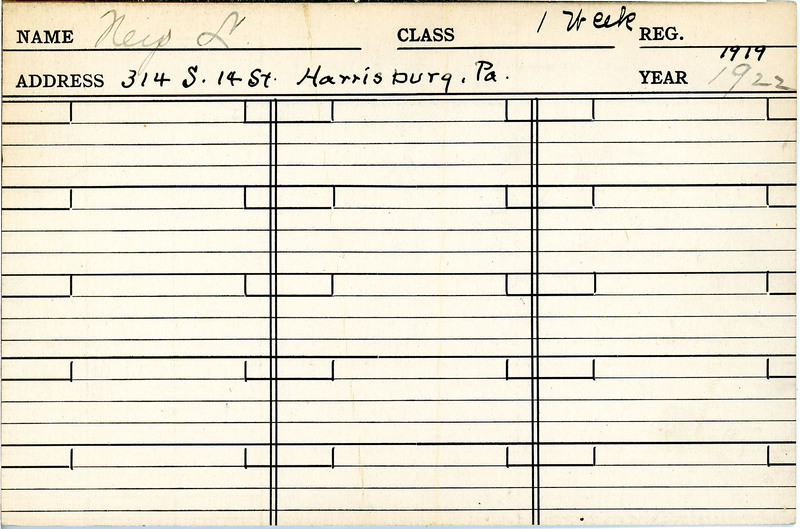 NAME CLASS 1 Week REG.
1919
ADDRESS 314 S. 14 St. Harrisburg, Pa. YEAR 1922